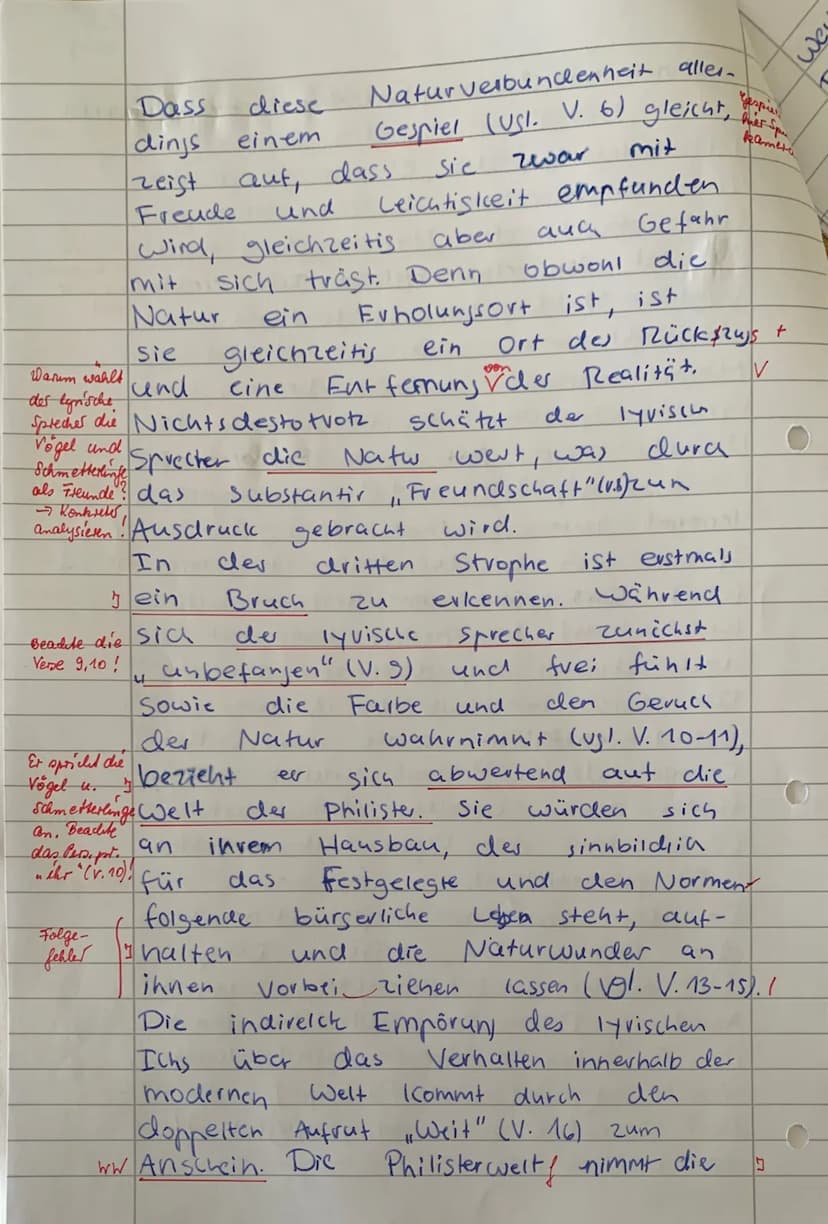 Dass diese Naturverbundenheit aller-
dings einem Gespiel (vgl. V. 6) gleicht,
zeigt auf, dass sie zwar mit
Freude und Leichtigkeit empfunden
wird, gleichzeitig aber auch Gefahr
mit sich trägt. Denn obwohl die
Natur ein Erholungsort ist, ist
sie gleichzeitig ein Ort des Rückzugs +
und eine Entfernung von der Realität. V
Nichtsdestotrotz schätzt der lyrisch
Sprecher die Natur wert, was durch
das Substantiv „Freundschaft" (V.8) zum
Ausdruck gebracht wird.
Warum wählt
der lyrische
Sprecher die
Vögel und
Schmetterlinge
als Freunde?
→ Konkreter
analysieren!
In der dritten Strophe ist erstmals
ein Bruch zu erkennen. Während
sich der lyrische Sprecher zunächst
„unbefangen" (V. 9) und frei fühlt
Beachte die
Verse 9,10!
sowie die Farbe und den Geruch
der Natur wahrnimmt (vgl. V. 10-11),
bezieht er sich abwertend auf die
Welt der Philister. Sie würden sich
an ihrem Hausbau, der sinnbildlich
für das Festgelegte und den Normen
Er spricht die
Vögel u.
Schmetterlinge
an. Beachte
das Pers.pr.
„ihr" (V. 10)!
folgende bürgerliche Leben steht, auf-
halten und die Naturwunder an
ihnen vorbei ziehen lassen (Vgl. V. 13-15). /
Folge-
fehler
Die indirekte Empörung des lyrischen
Ichs über das Verhalten innerhalb der
modernen Welt kommt durch den
doppelten Aufruf „Weit" (V. 16) zum
WW Anschein. Die Philisterwelt nimmt die